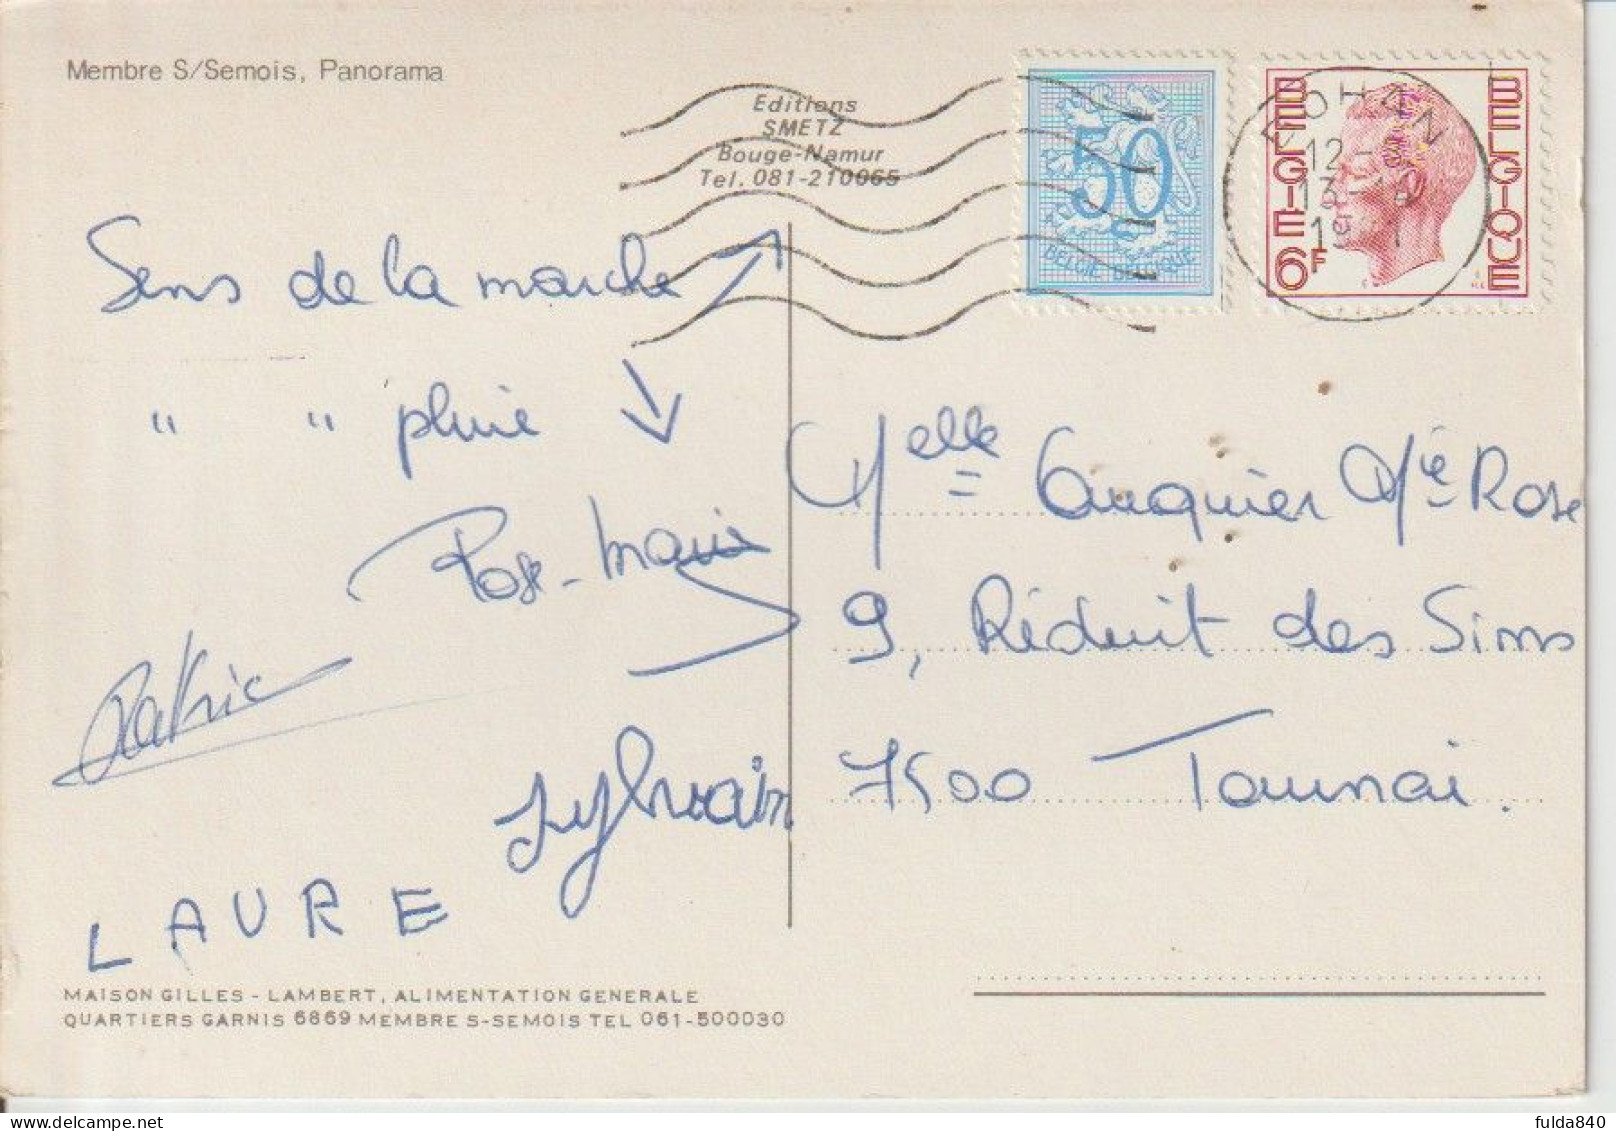 Membre S/Semois, Panorama
Editions
SMETZ
Bouge-Namur
Tel. 081-210065
50
BELGIE BELGIQUE
BELGIE 6F
BELGIQUE
BOHAN
12
13-
Sens de la marche
" " pluie
Rose-Marie
Patric
Sylvain
LAURE
Melle Cuquier Mie Rose
9, Réduit des Sions
7500 Tournai.
MAISON GILLES - LAMBERT, ALIMENTATION GENERALE
QUARTIERS GARNIS 6869 MEMBRE S-SEMOIS TEL 061-500030
fulda840